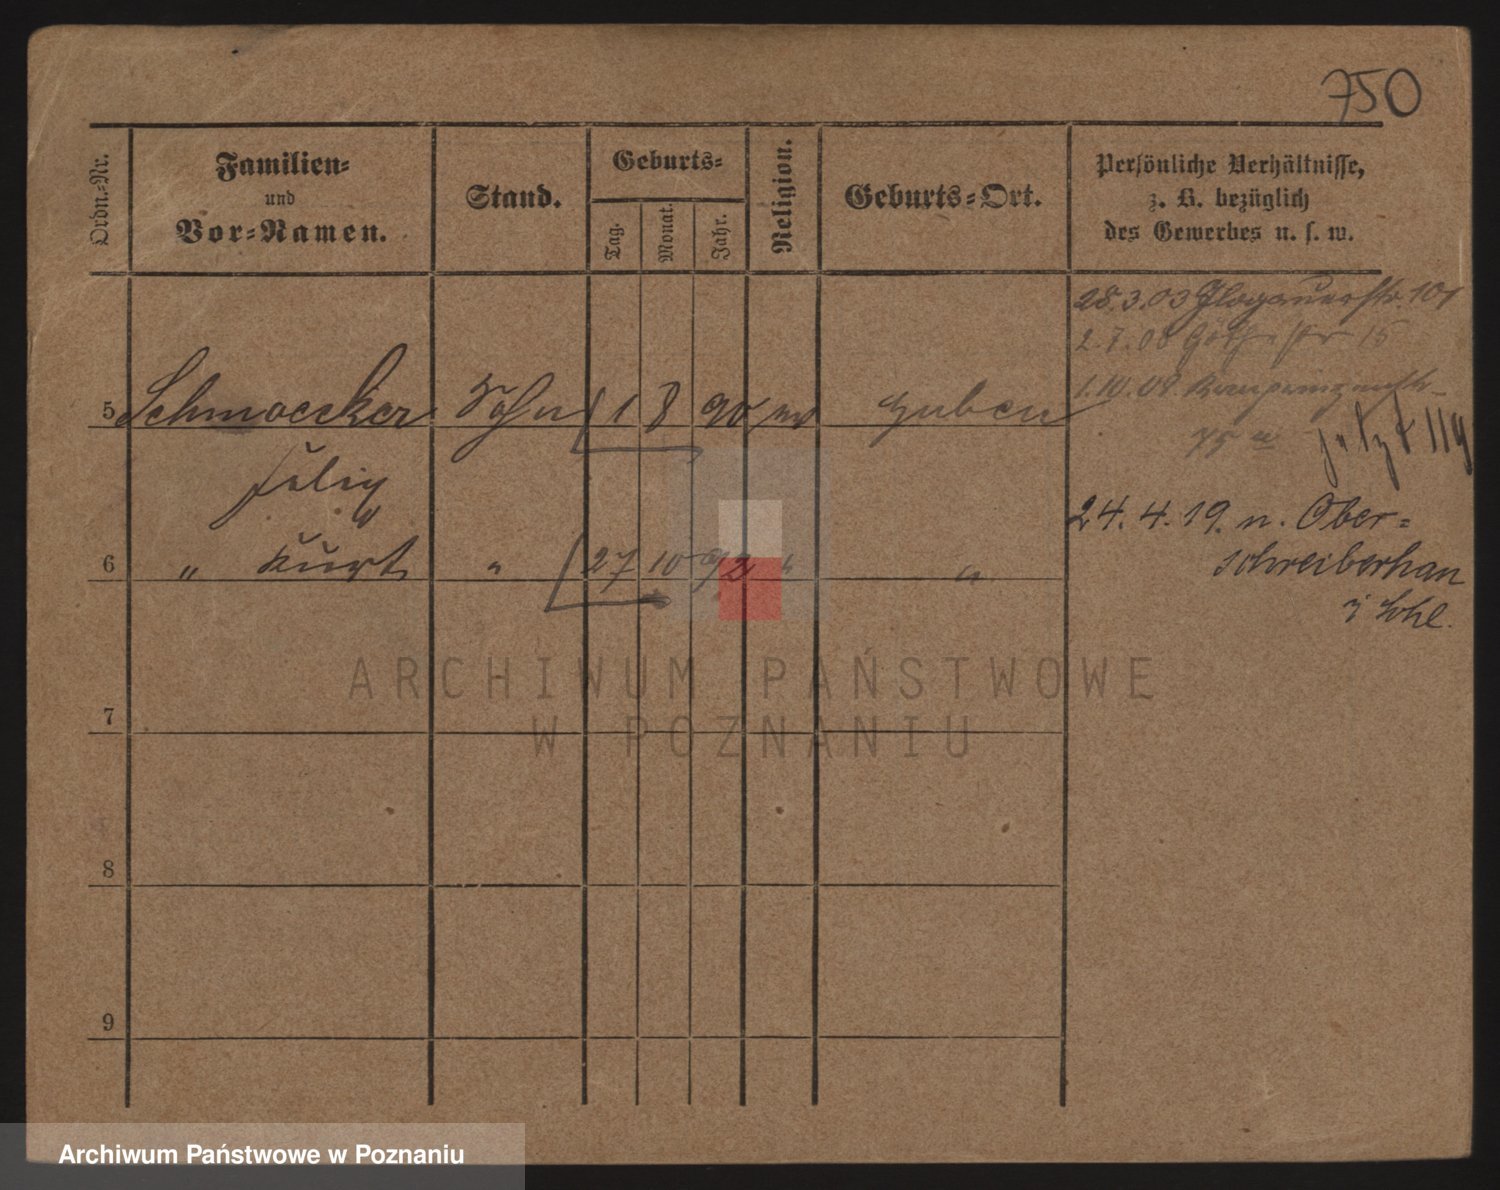 750
Ordn.-Nr.
Familien-
und
Vor-Namen.
Stand.
Geburts-
Tag.
Monat.
Jahr.
Religion.
Geburts-Ort.
Persönliche Verhältnisse,
z. B. bezüglich
des Gewerbes u. s. w.
28.3.03 Glogauerstr. 101
2.7.08 Gothestr 15
5 Schmoecker Sohn 1 8 90 Guben
1.10.08
75 jetzt 119
Felix
24.4.19. n. Ober-
6 " Kurt " 27 10 92 " "
schreiberhau
i Schl.
7
8
9
ARCHIWUM PAŃSTWOWE
W POZNANIU
Archiwum Państwowe w Poznaniu